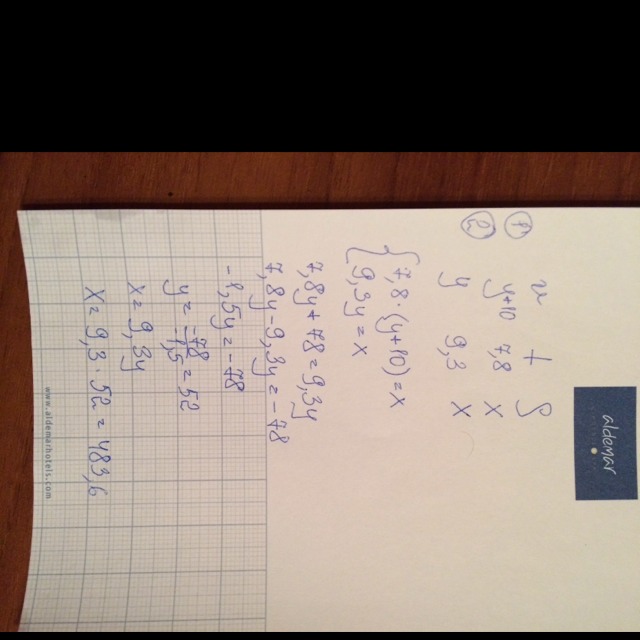 aldemar
v t S
① y+10 7,8 x
② y 9,3 x
{ 7,8·(y+10)=x
9,3y=x
7,8y+78=9,3y
7,8y-9,3y=-78
-1,5y=-78
y= -78/-1,5 =52
x=9,3y
x=9,3·52=483,6
www.aldemarhotels.com